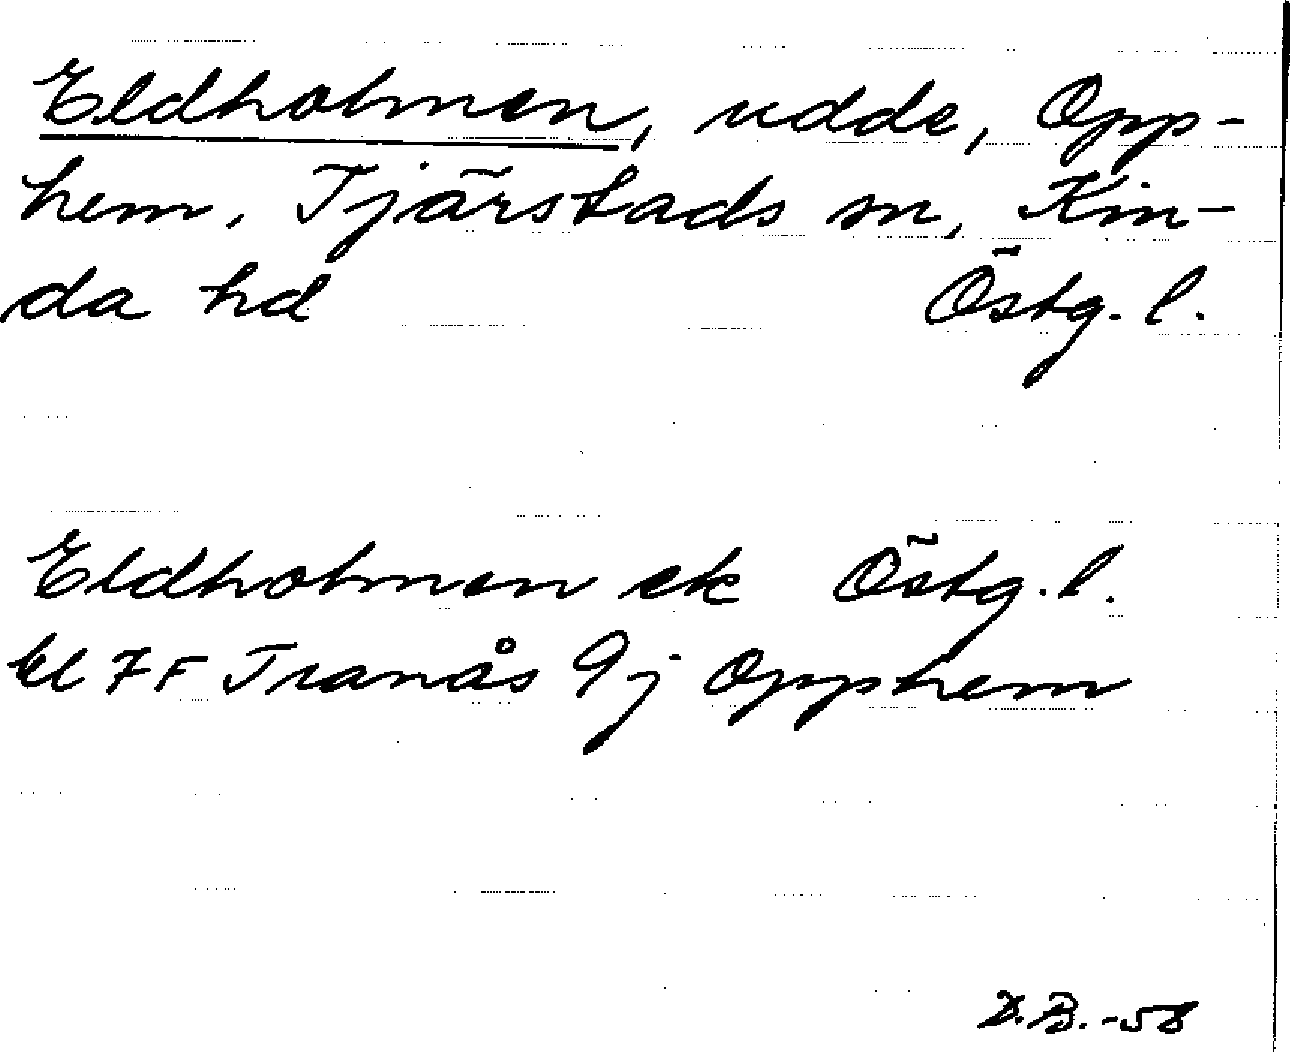 Eldholmen, udde, Opp-
hem, Tjärstads sn, Kin-
da hd Östg. l.
Eldholmen ek Östg. l.
bl 7F Tranås 9j Opphem
D.B.-58